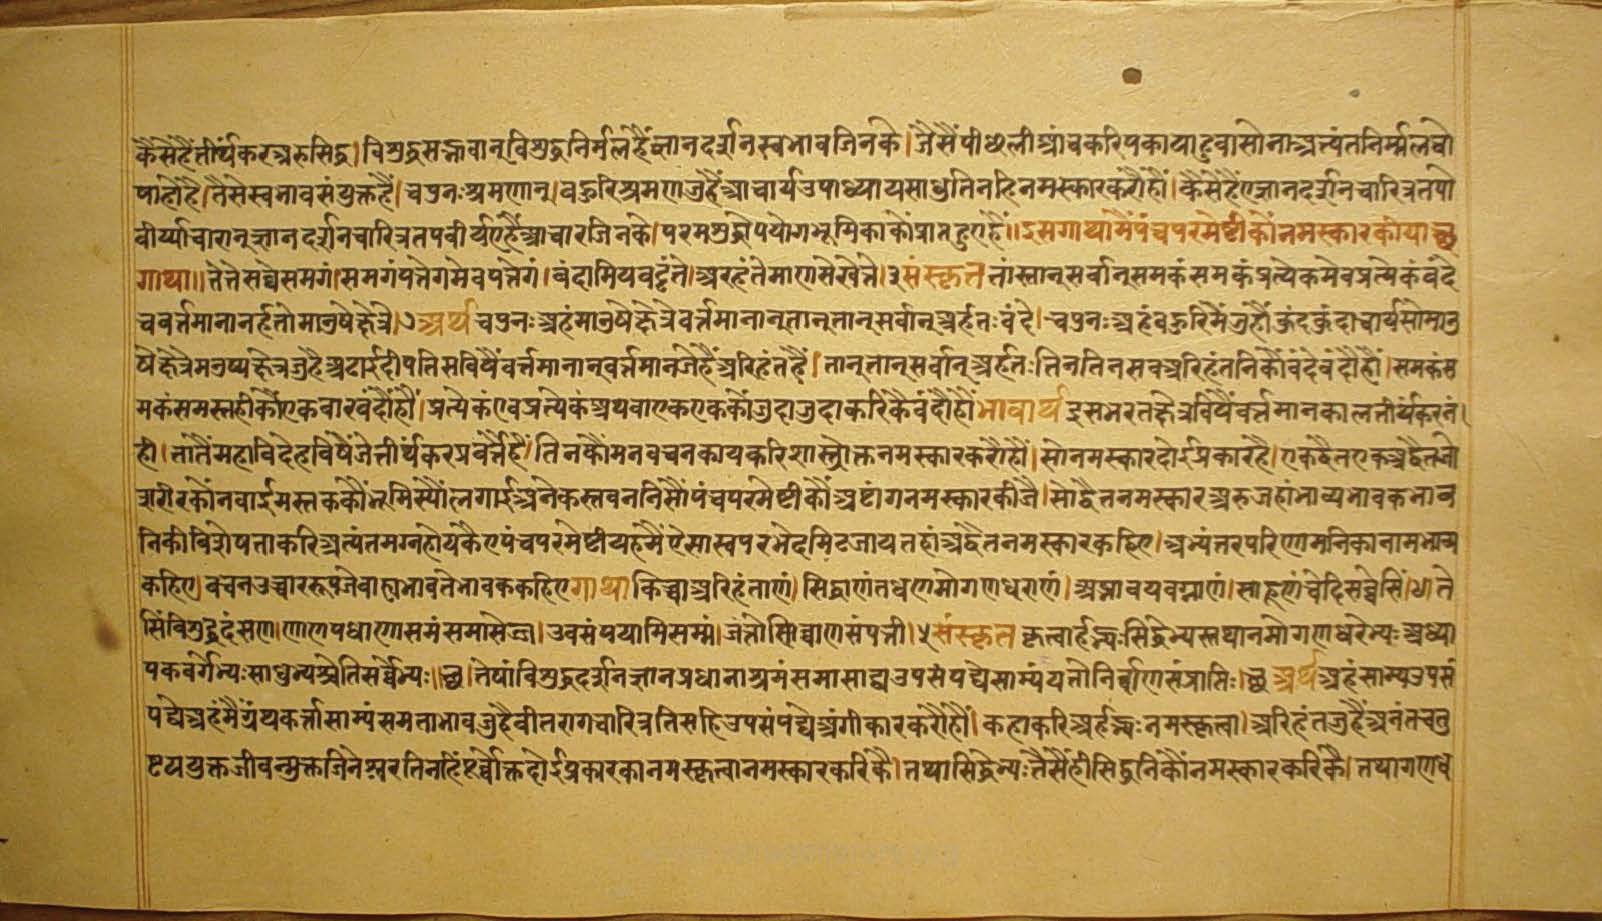 कैसेहैंतीर्थंकरअरुसिद्ध। विशुद्धसद्भावान्विशुद्धनिर्मलहैंज्ञानदर्शनस्वभावजिनके। जैसैंपीछलीआंचकरिपकायाहुवासोनाअत्यंतनिर्म्मलचो
षाहोहै। तैसेस्वभावसंयुक्तहैं। चपुनःश्रमणान्। बहुरिश्रमणजुहैंआचार्यउपाध्यायसाधुतिनहिनमस्कारकरौंहौं। कैसेहैंएज्ञानदर्शनचारित्रतपो
वीर्य्याचारान्ज्ञानदर्शनचारित्रतपवीर्यएहैंआचारजिनके। परमशुद्धोपयोगभूमिकाकोंप्राप्तहुएहैं॥ इसगाथामैंपंचपरमेष्टीकोंनमस्कारकीया छ
गाथा॥ तेतेसव्वेसमगं। समगंपत्तेगमेवपत्तेगं। वंदामियवट्टंते। अरहंतेमाणुसेखेत्ते। ३ संस्कृत तांस्तान्सर्वान्समकंसमकंप्रत्येकमेवप्रत्येकंवंदे
चवर्त्तमानानर्हतोमानुषेक्षेत्रे। ३ अर्थ चपुनःअहंमानुषेक्षेत्रेवर्त्तमानान्तान्तान्सर्वान्अर्हतःवंदे। चपुनःअहंबहुरिमैंजुहौंकुंदकुंदाचार्यसोमानु
षेक्षेत्रेमनुष्यक्षेत्रजुहैअढाईद्दीपतिसविषैंवर्त्तमानान्वर्त्तमानजेहैंअरिहंतहैं। तान्तान्सर्वान्अर्हतःतिनतिनसवअरिहंतनिकौंवंदेवंदौंहौं। समकंस
मकंसमस्तहीकौंएकबारवंदौंहौं। प्रत्येकंएवप्रत्येकंअथवाएकएककोंजुदाजुदाकरिकैवंदौंहौं भावार्थ इसभरतक्षेत्रविषैंवर्त्तमानकालतीर्थंकरनं
ही। तातैंमहाविदेहविषैंजेतीर्थंकरप्रवर्त्तैहैं। तिनकौंमनवचनकायकरिशास्त्रोक्तनमस्कारकरौंहौं। सोनमस्कारदोईप्रकारहै। एकद्वैतएकअद्वैततहां
शरीरकोंनवाईमस्तककौंभूमिस्यौंलगाईअनेकस्तवननिसौंपंचपरमेष्टीकौंअष्टांगनमस्कारकीजै। सोद्वैतनमस्कारअरुजहांभाव्यभावकभाव
निकीविशेषताकरिअत्यंतमग्नहोयकैएपंचपरमेष्टीयहमैंऐसास्वपरभेदमिटजायतहांअद्वैतनमस्कारकहिए। अभ्यंतरपरिणामनिकानामभाव्य
कहिए। वचनउच्चाररूपजेबाह्यभावतेभावककहिए गाथा किच्चाअरिहंताणं। सिद्धाणंतधणमोगणधराणं। अज्झावयवग्गाणं। साहूणंचेदिसव्वेसिं। ४। ते
सिंविशुद्धदंसण। णाणपधाणासमंसमासेज्ज। उवसंपयामिसम्मं। जत्तोणिव्वाणसंपत्ती। ५ संस्कृत कृत्वार्हद्भ्यःसिद्धेभ्यस्तथानमोगणधरेभ्यःअध्या
पकवर्गेभ्यःसाधुभ्यश्चेतिसर्व्वेभ्यः। छ। तेषांविशुद्धदर्शनज्ञानप्रधानाश्रमंसमासाद्यउपसंपद्येसाम्यंयतोनिर्व्वाणसंप्राप्तिः। छ अर्थ अहंसाम्यंउपसं
पद्येअहंमैंग्रंथकर्त्तासाम्यंसमताभावजुहैवीतरागचारित्रतिसहिउपसंपद्येअंगीकारकरौंहौं। कहाकरिअर्हद्भ्यःनमस्कृत्वा। अरिहंतजुहैंअनंतचतु
ष्टययुक्तजीवन्मुक्तजिनेश्वरतिनहिंपूर्व्वोक्तदोईप्रकारकानमस्कृत्वानमस्कारकरिकै। तथासिद्धेभ्यःतैसेंहीसिद्धनिकौंनमस्कारकरिकै। तथागणध